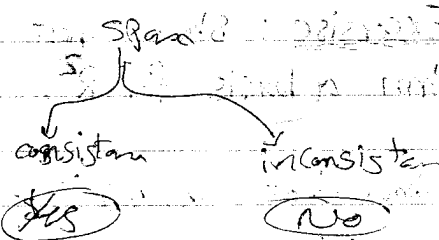 Span
S
consistan inconsisten
Yes No